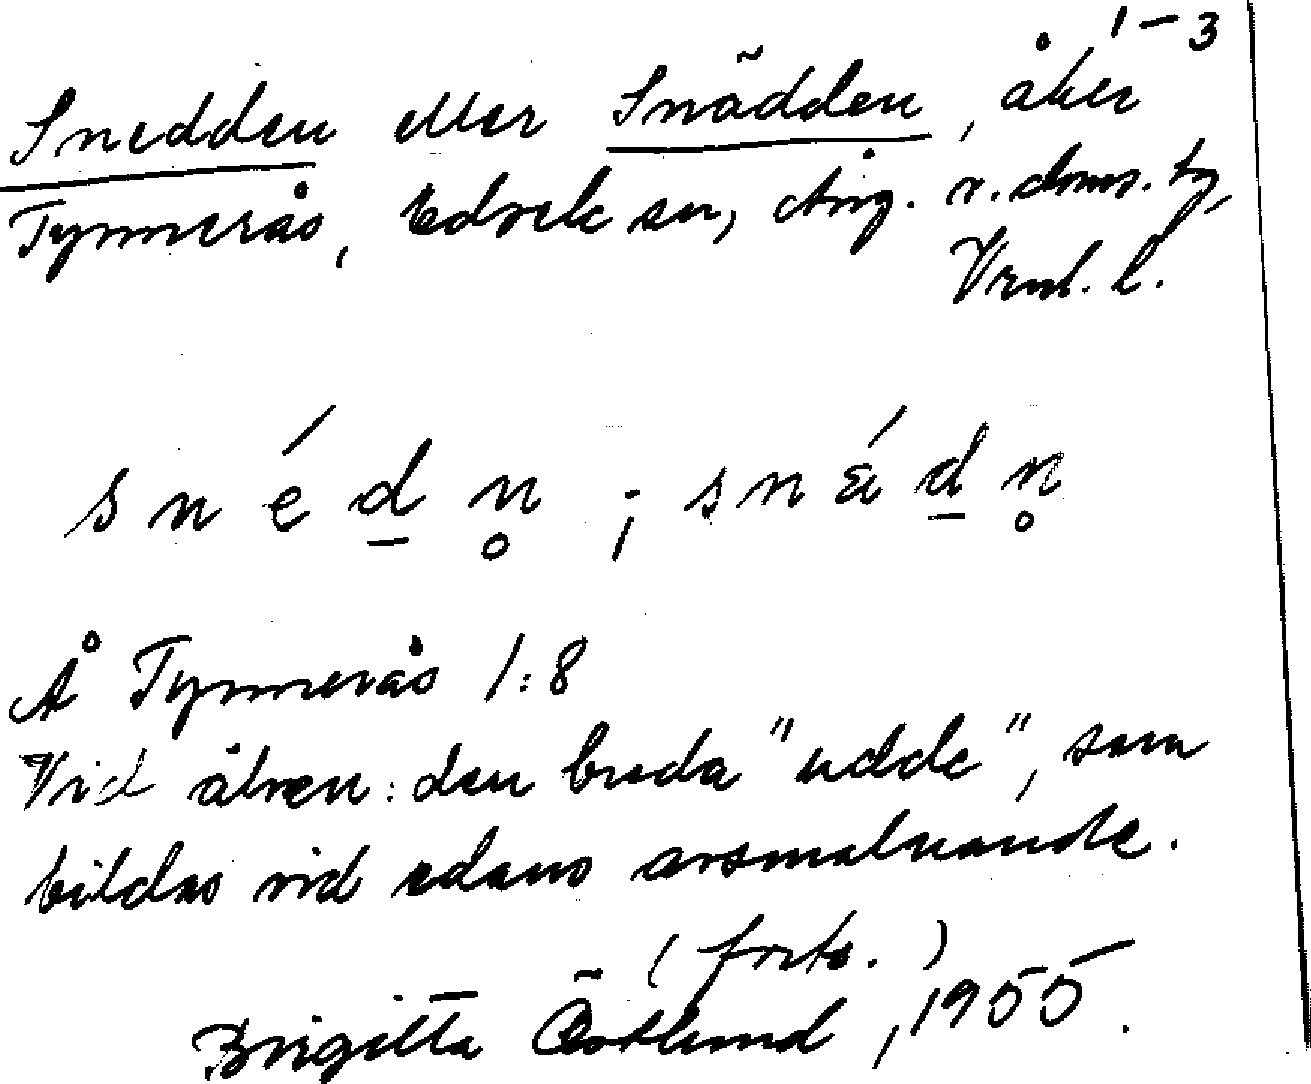 1-3
Snedden eller Snädden, åker
Tymnerås, Edsleskn, Älvg. v. doms. tg,
Vrml. l.
s n é d n̥ ; s n ǽ d n̥
Å Tymnerås 1:8
Vid älven: den breda "udde", som
bildas vid edans avsmalnande.
(forts.)
Brigitta Östlund, 1955.